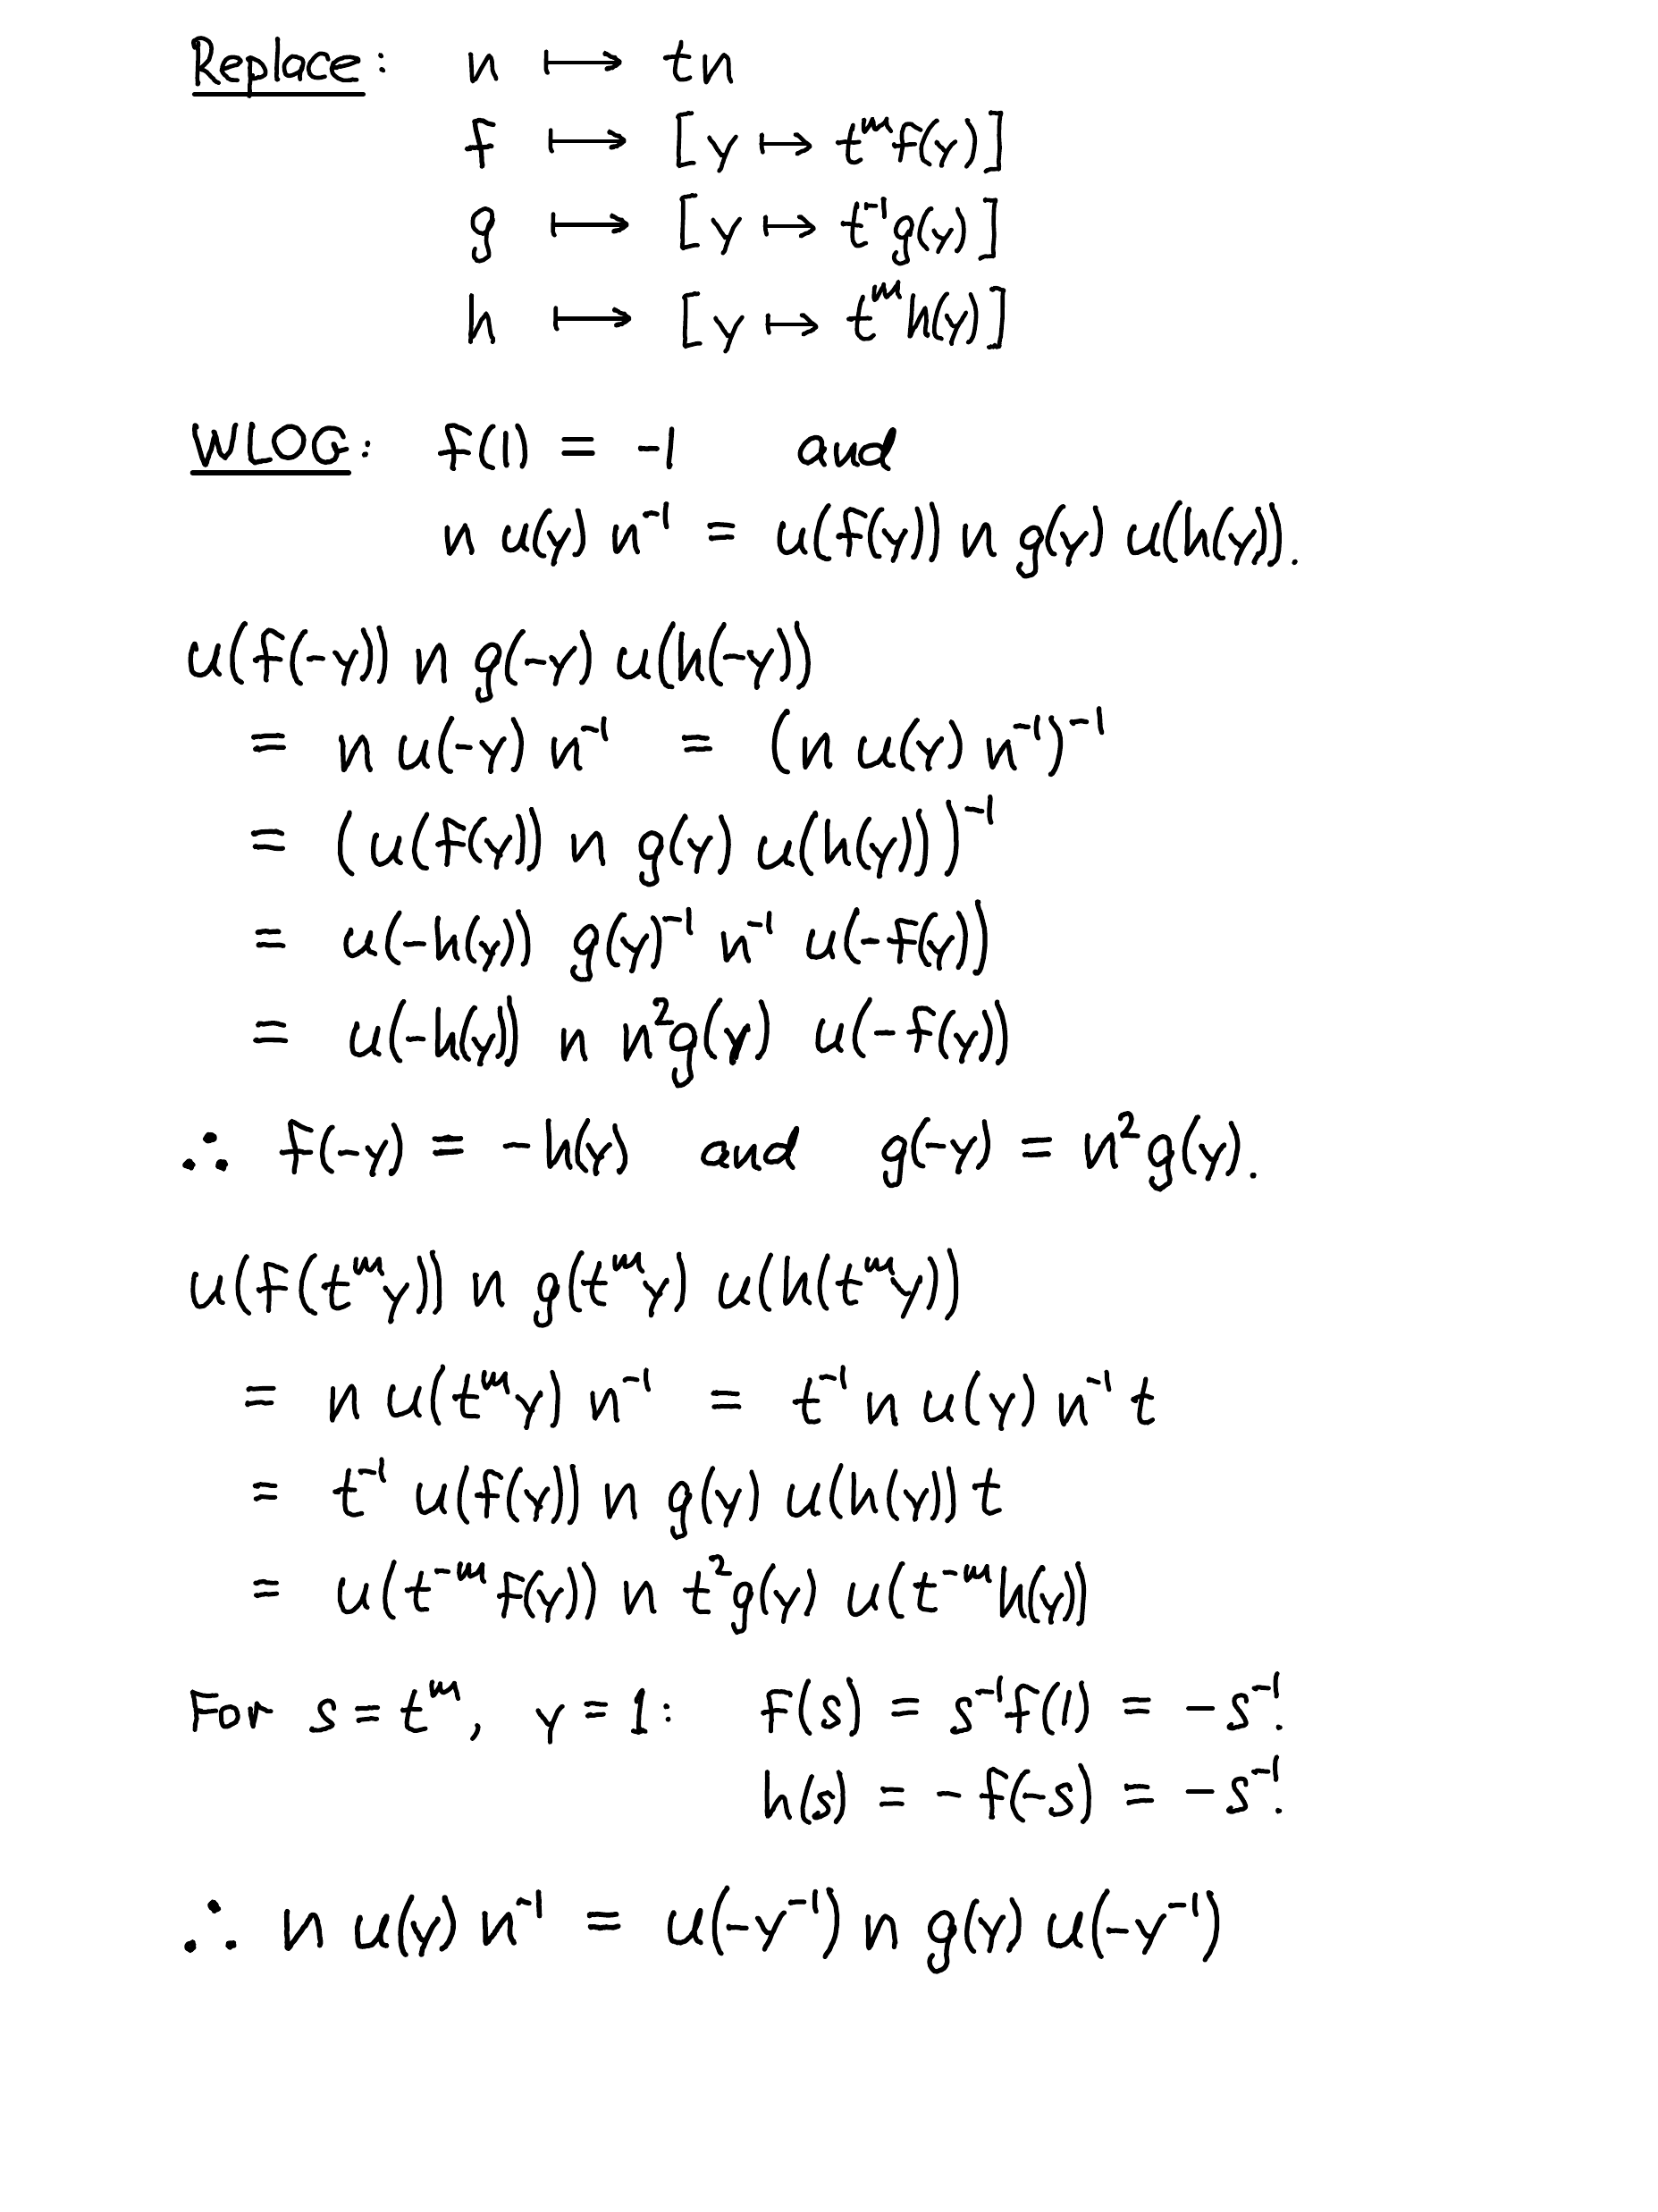 Replace: n ⟼ tn
f ⟼ [y ↦ tᵐf(y)]
g ⟼ [y ↦ t⁻¹g(y)]
h ⟼ [y ↦ tᵐh(y)]
WLOG: f(1) = -1 and
n u(y) n⁻¹ = u(f(y)) n g(y) u(h(y)).
u(f(-y)) n g(-y) u(h(-y))
= n u(-y) n⁻¹ = (n u(y) n⁻¹)⁻¹
= (u(f(y)) n g(y) u(h(y)))⁻¹
= u(-h(y)) g(y)⁻¹ n⁻¹ u(-f(y))
= u(-h(y)) n n²g(y) u(-f(y))
∴ f(-y) = -h(y) and g(-y) = n²g(y).
u(f(tᵐy)) n g(tᵐy) u(h(tᵐy))
= n u(tᵐy) n⁻¹ = t⁻¹ n u(y) n⁻¹ t
= t⁻¹ u(f(y)) n g(y) u(h(y)) t
= u(t⁻ᵐf(y)) n t²g(y) u(t⁻ᵐh(y))
For s = tᵐ, y = 1: f(s) = s⁻¹f(1) = -s⁻¹.
h(s) = -f(-s) = -s⁻¹.
∴ n u(y) n⁻¹ = u(-y⁻¹) n g(y) u(-y⁻¹)